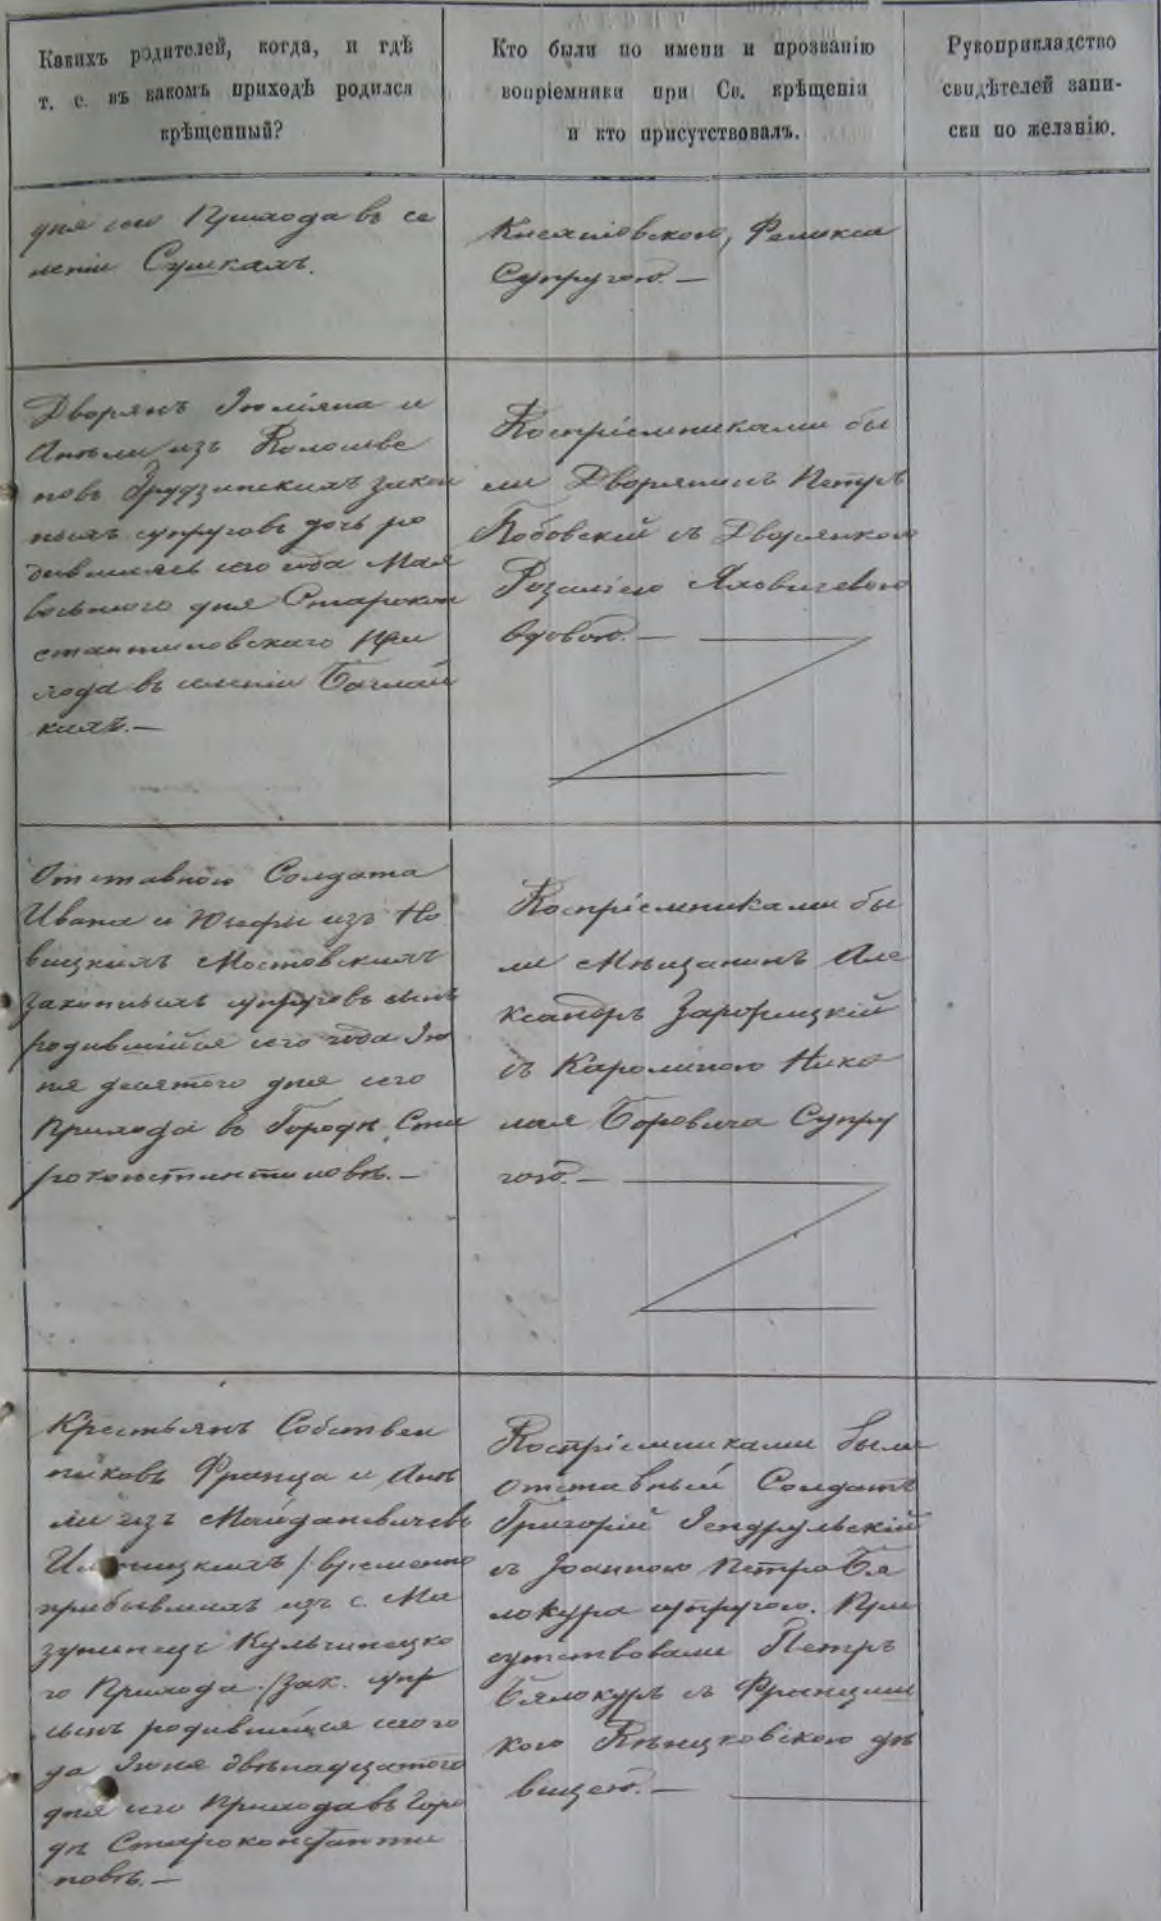 Какихъ родителей, когда, и гдѣ
т. е. въ какомъ приходѣ родился
крѣщенный?
Кто были по имени и прозванію
вопріемники при Св. крѣщеніи
и кто присутствовалъ.
Рукоприкладство
свидѣтелей запи-
ски по желанію.
дня сего Прихода въ се
леніи Сушкахъ.
Феликса
Супругою. —
Дворянъ Юліяна и
Анѣли изъ
Грудзинскихъ закон
ныхъ супруговъ дочь ро
дившаяся сего года Мая
восьмого дня Старокон
стантиновскаго При
хода въ селеніи Баглай
кахъ. —
Воспріемниками бы
ли Дворянинъ Петръ
Бобовскій съ Дворянкою
Розаліею
Вдовою. —
Отставного Солдата
Ивана и Юзефы изъ Но
вицкихъ Мостовскихъ
законныхъ супруговъ сынъ
родившійся сего года Ію
ня десятого дня сего
Прихода въ Городѣ Ста
роконстантиновѣ. —
Воспріемниками бы
ли Мѣщанинъ Але
ксандръ
съ Каролиною Нико
лая Боровича Супру
гою. —
Крестьянъ Собствен
никовъ Франца и Анѣ
ли изъ Майдановичевъ
/: временно
прибывшихъ изъ с. Ма
зуминецъ Кульчинецко
го Прихода :/ зак. супр
сынъ родившійся сего го
да Іюня двѣнадцатого
дня сего Прихода въ Горо
дѣ Староконстанти
новѣ. —
Воспріемниками были
отставный Солдатъ
Григорій
съ Іоанною Петра Бя
локура супругою. При
сутствовали Петръ
Бялокуръ съ Францишк
кою дѣ
вицею. —